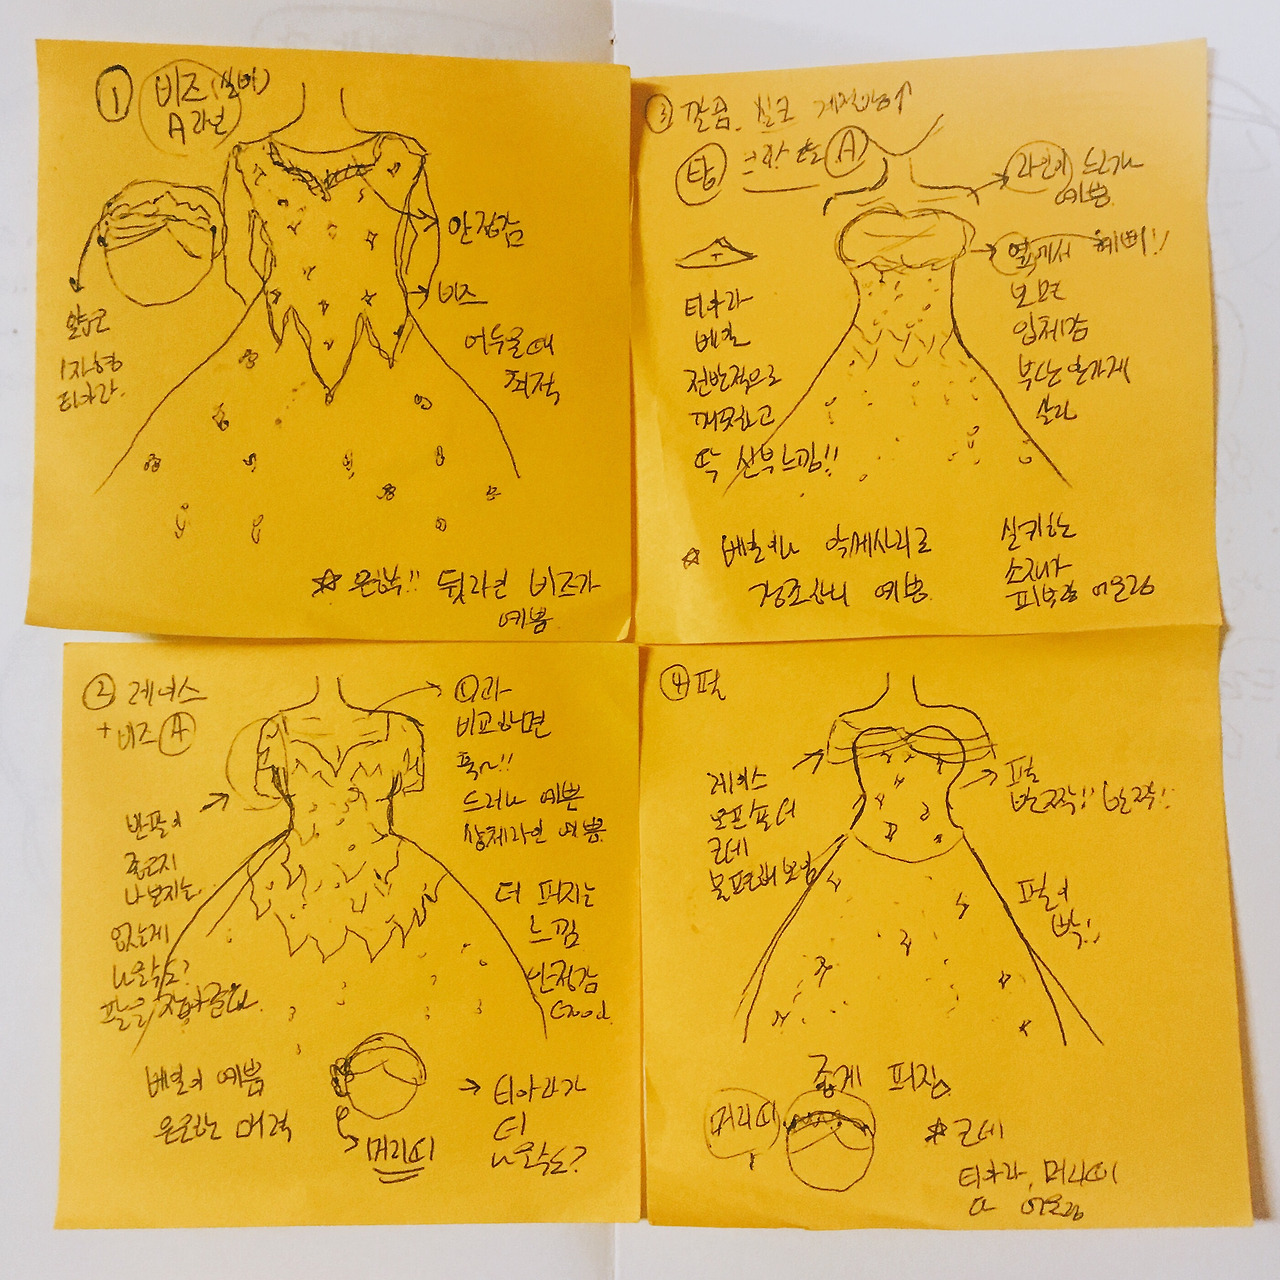 ① 비즈(실버)
A라인
안정감
비즈
어두울때
최적
얇은
1자형
티아라.
☆ 은한!! 뒷라인 비즈가
예쁨
③ 깔끔. 실크 계절감↑
탑 A
라인이 드러나
예쁨
옆에서 예뻐!!
보면
입체감
부난한가게
살라
티아라
베일
전반적으로
깨끗하고
딱 신부느낌!!
☆ 베일이나 악세사리로
강조하니 예쁨.
실키한
소재가
피부랑 어울림
② 레이스
+ 비즈 A
①과
비교하면
훅~!!
드러나 예쁜
상체라인 예쁨
반팔이
좁은지
나보지는
있는게
나을수도?
팔을 잡아준다.
더 퍼지는
느낌
안정감
Good.
베일이 예쁨
은은한 매력
머리띠
→ 티아라가
더
나을수도?
④ 펄
레이스
오프숄더
근데
불편해보임
펄
반짝!! 반짝!!
펄이
빡!!
좁게 퍼짐
머리띠
☆ 근데
티아라, 머리띠
다 어울림